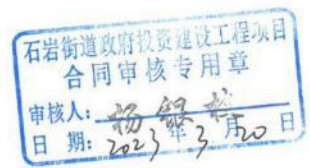 石岩街道政府投资建设工程项目
合同审核专用章
审核人：杨银
日期：2023年3月20日